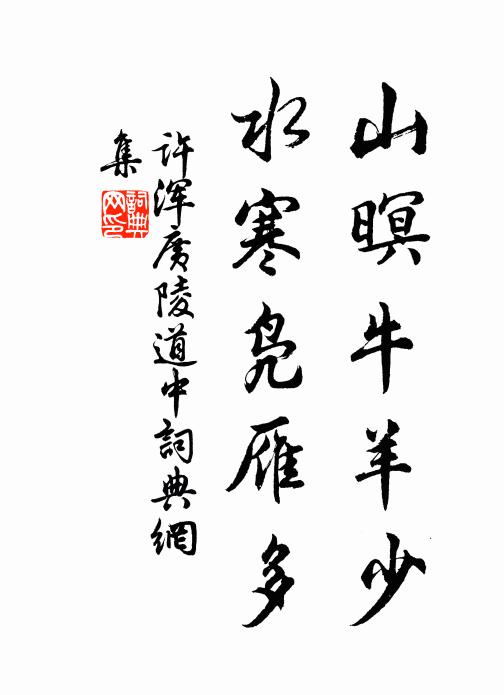 山暝牛羊少
水寒凫雁多
许浑广陵道中詞典網
集
詞典
网印